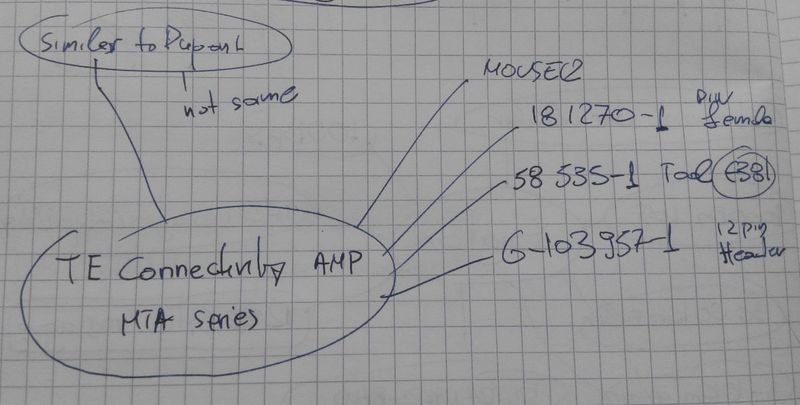 Similar to Dupont
not same
MOUSER
181270-1 pin female
58535-1 Tool €381
6-103957-1 12 pin Header
TE Connectivity AMP
MTA series